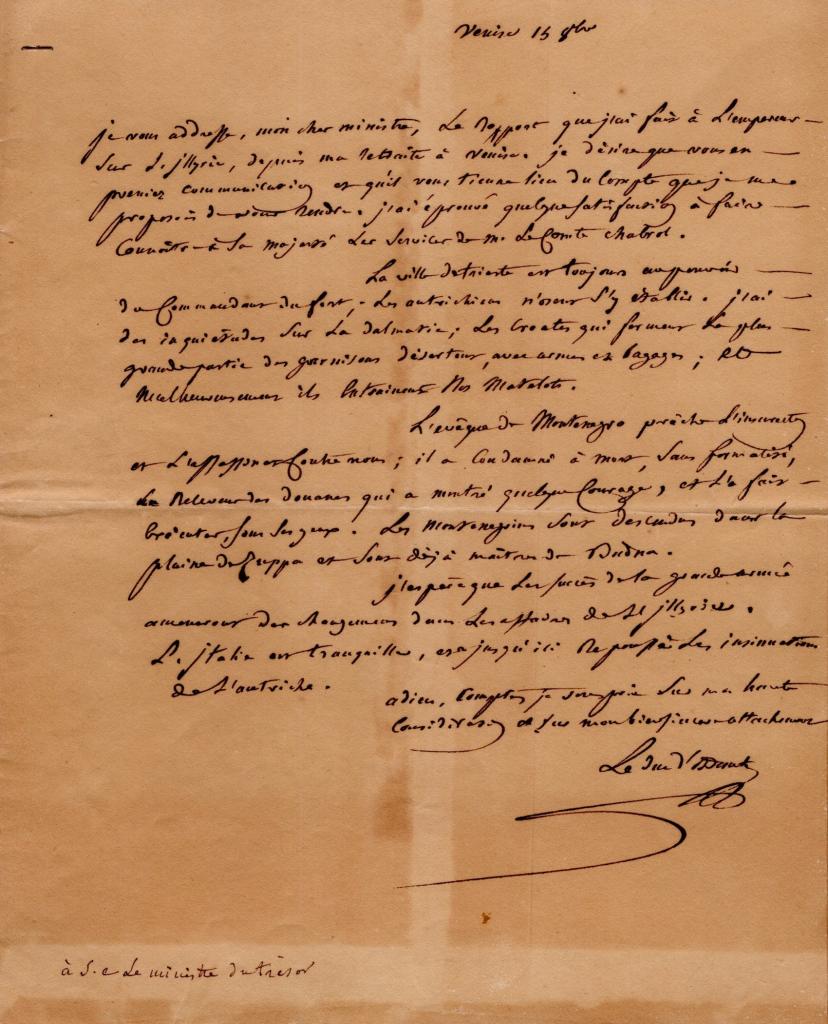 Venise 15 8bre
je vous addresse, mon cher ministre, le rapport que j'ai fait à L'empereur
sur L'jllyrie, depuis ma retraite à Venise. je désire que vous en
preniez communication et qu'il vous tienne lieu du Compte que je me
proposois de vous rendre. j'ai éprouvé quelque satisfaction à faire
Connoître à sa majesté Les Services de m. Le Comte chabrol.
La ville de trieste est toujours au pouvoir
du Commandant du fort; Les autrichiens n'osent s'y établir. j'ai
des inquiétudes sur La dalmatie; Les Croates qui forment la plus
grande partie des garnisons désertent, avec armes et bagages; et
malheureusement ils Entrainent Nos Matelots.
L'evêque de Montenegro prêche L'insurrection
et L'assassinat Contre nous; il a Condamné à mort, sans formalité,
Le Receveur des douanes qui a montré quelque Courage, et L'a fait
Exécuter, sous ses yeux. Les Montenegrins sont descendus dans la
plaine de Zuppa et sont déjà maîtres de Budua.
j'espère que Les succès de la grande armée
ameneront des changemens dans Les affaires de L'jllyrie.
L'jtalie est tranquille, et a jusqu'ici repoussé Les insinuations
de L'autriche.
adieu, Comptez je vous prie sur ma haute
Considération et sur mon bien sincere attachement
Le duc d'Otrante
à S. e Le ministre du trésor